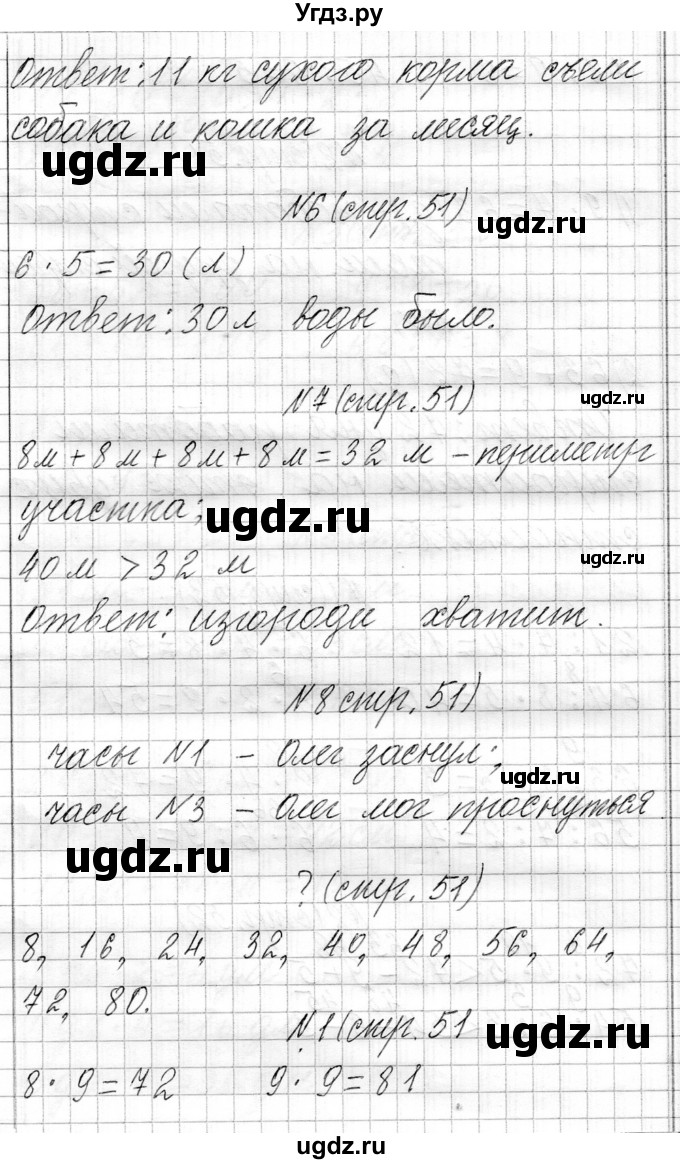 Угдз.ру
Ответ: 11 кг сухого корма съели
собака и кошка за месяц.
ugdz.ru
N6 (стр. 51)
ugdz.ru
6 · 5 = 30 (л)
Ответ: 30 л воды было.
N7 (стр. 51)
ugdz.ru
8м + 8м + 8м + 8м = 32 м - периметр
участка;
ugdz.ru
40м > 32 м
ugdz.ru
Ответ: изгороди хватит.
N8 стр. 51)
часы N1 - Олег заснул;
ugdz.ru
часы N3 - Олег мог проснуться
ugdz.ru
? (стр. 51)
8, 16, 24, 32, 40, 48, 56, 64,
72, 80.
ugdz.ru
N1 (стр. 51
8 · 9 = 72 9 · 9 = 81
ugdz.ru